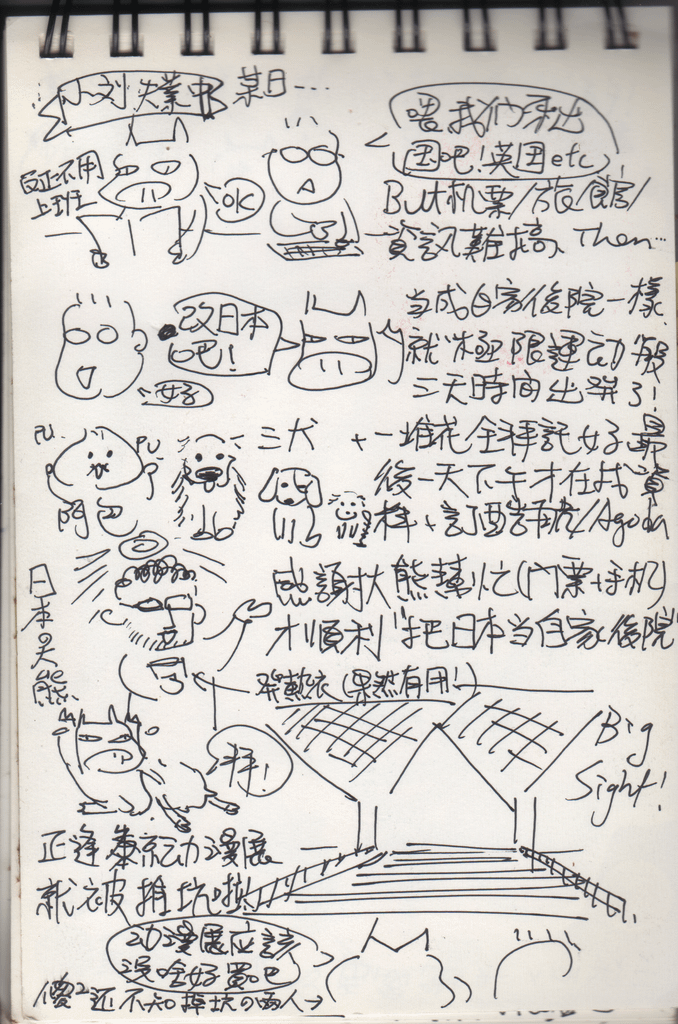 小刘失業中
某日…
喂我们来出
国吧!英国etc
反正不用
上班
OK
But机票/旅館/
資訊難搞, Then…
改日本
吧!
好
当成自家後院一樣
就極限運动般
三天時间出発了!
PU
PU
阿巴
三犬 + 一堆花全拜託好 最
後一天下午才在找資
料+訂酒店
/Agoda
日本吴
熊
感謝大熊幫忙(门票+手机)
才順利"把日本当自家後院"
発熱衣(果然有用!)
拜!
Big
Sight!
正逢東京动漫展
就被推坑啦
动漫展应該
沒啥好買吧
傻²还不知掉坑の兩人→